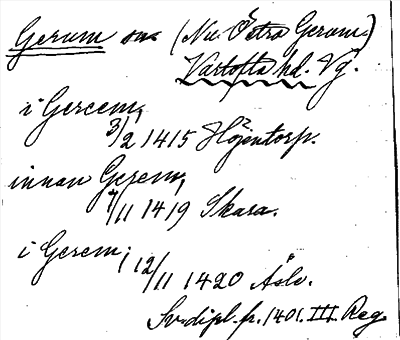 Gerum sn (Nu Östra Gerum)
Vartofta hd. Vg.
i Gercem,
3/2 1415 Höjentorp.
innan Gerem,
7/11 1419 Skara.
i Gerem; 12/11 1420 Åslv.
Sv. dipl. fr. 1401. III. Reg.